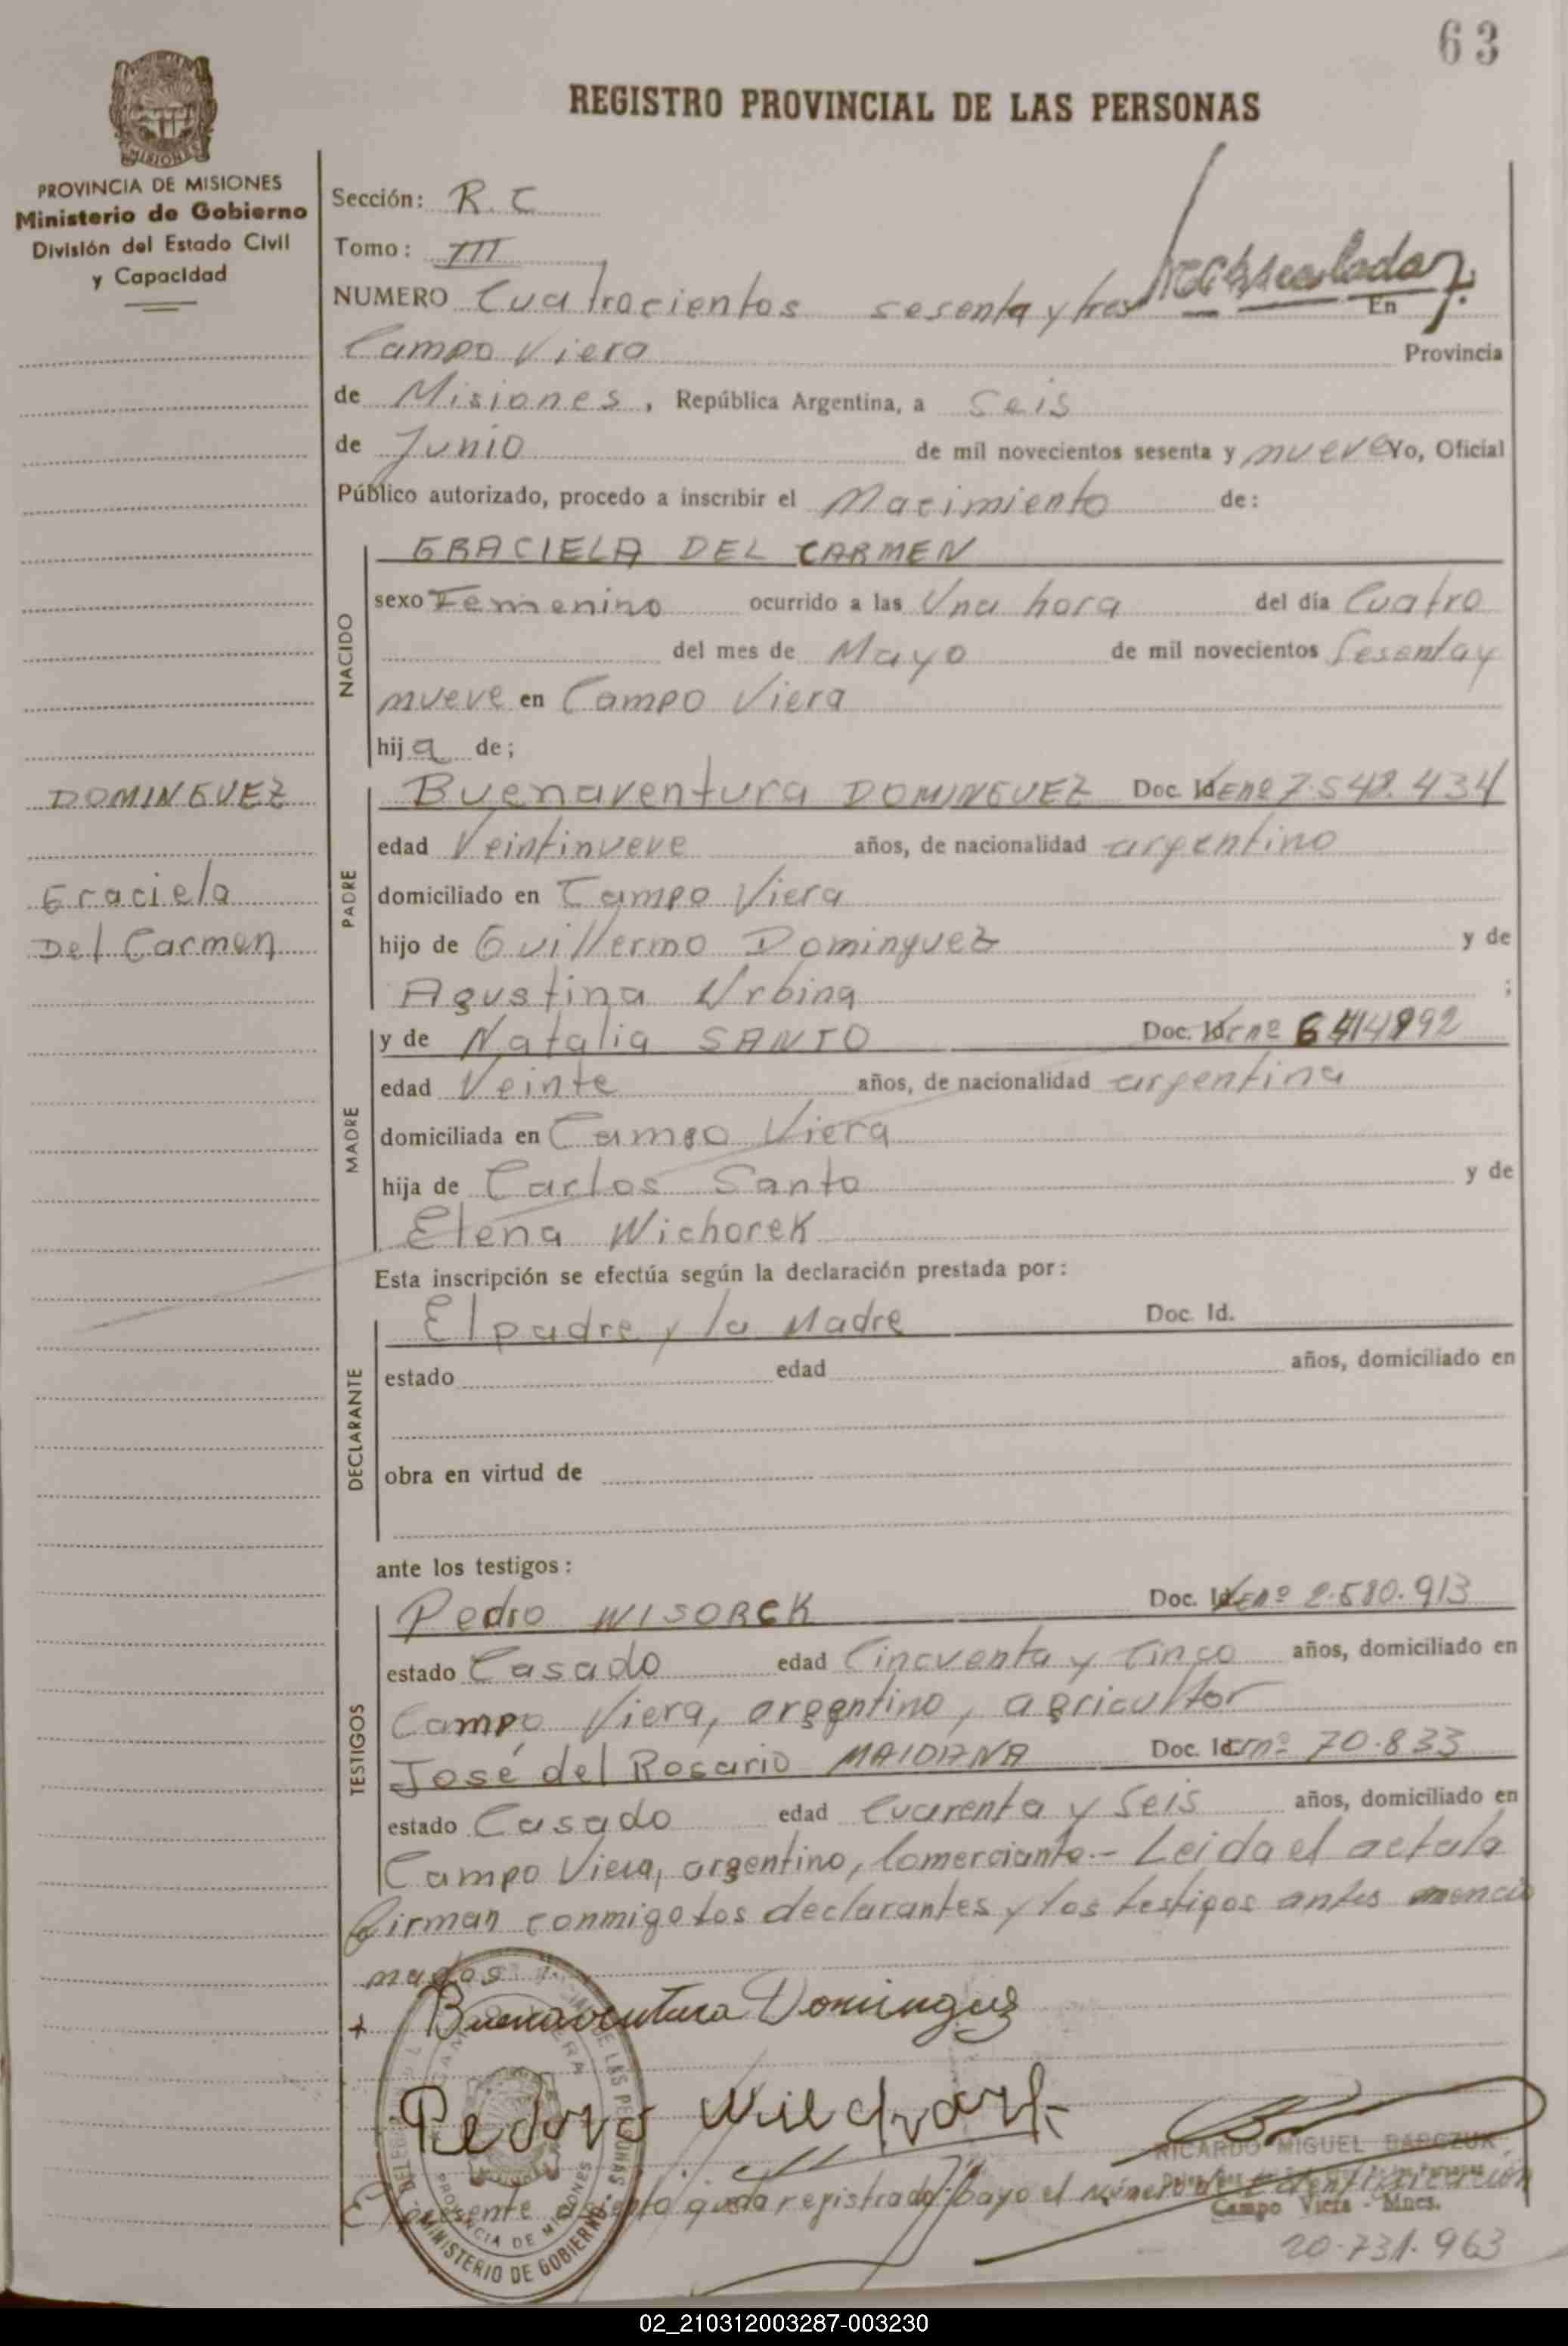 63
REGISTRO PROVINCIAL DE LAS PERSONAS
MISIONES
PROVINCIA DE MISIONES
Ministerio de Gobierno
División del Estado Civil
y Capacidad
Sección: R. C
Tomo: III
NUMERO Cuatrocientos sesenta y tres En
Campo Viera Provincia
de Misiones, República Argentina, a Seis
de Junio de mil novecientos sesenta y nueve Yo, Oficial
Público autorizado, procedo a inscribir el Nacimiento de:
NACIDO
GRACIELA DEL CARMEN
sexo Femenino ocurrido a las Una hora del día Cuatro
del mes de Mayo de mil novecientos Sesenta y
nueve en Campo Viera
hija de;
DOMINGUEZ
Graciela
Del Carmen
PADRE
Buenaventura DOMINGUEZ Doc. Id E nº 7.548.434
edad Veintinueve años, de nacionalidad argentino
domiciliado en Campo Viera
hijo de Guillermo Dominguez y de
Agustina Urbina ;
MADRE
y de Natalia SANTO Doc. Id c nº
edad Veinte años, de nacionalidad argentina
domiciliada en Campo Viera
hija de Carlos Santo y de
Elena Wichorek
Esta inscripción se efectúa según la declaración prestada por:
DECLARANTE
El padre y la Madre Doc. Id.
estado edad años, domiciliado en
obra en virtud de
ante los testigos:
TESTIGOS
Pedro WISORCK Doc. Id E nº 2.580.913
estado Casado edad Cincuenta y Cinco años, domiciliado en
Campo Viera, argentino, agricultor
José del Rosario MAIDANA Doc. Id nº 70.833
estado Casado edad Cuarenta y Seis años, domiciliado en
Campo Viera, argentino, Comerciante.- Leida el acta la
firman conmigo los declarantes y los testigos antes mencio
nados
+ Buenaventura Dominguez
Pedro
RICARDO MIGUEL BARCZUK
El presente asiento queda registrado bayo el número de identificación
Campo Viera - Mnes.
20.731.963
PROVINCIA DE MISIONES
MINISTERIO DE GOBIERNO
02_210312003287-003230